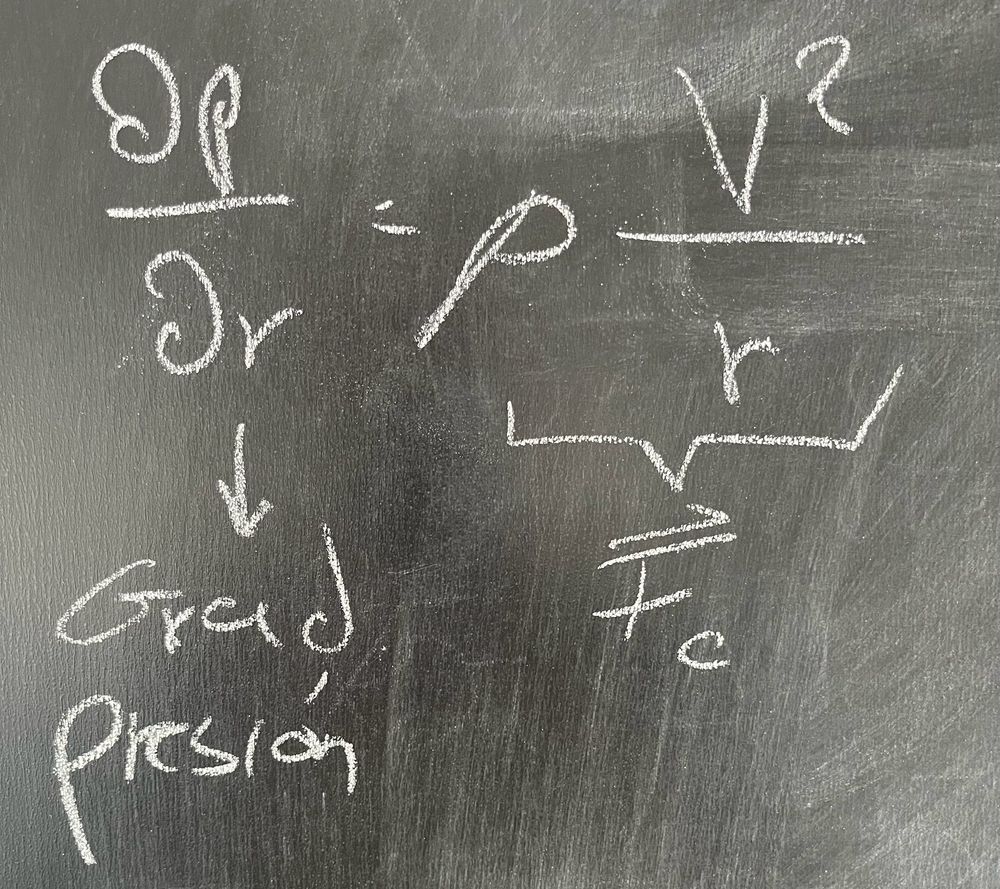 ∂p/∂r = ρ V²/r
↓
Grad
presión
F⃗c